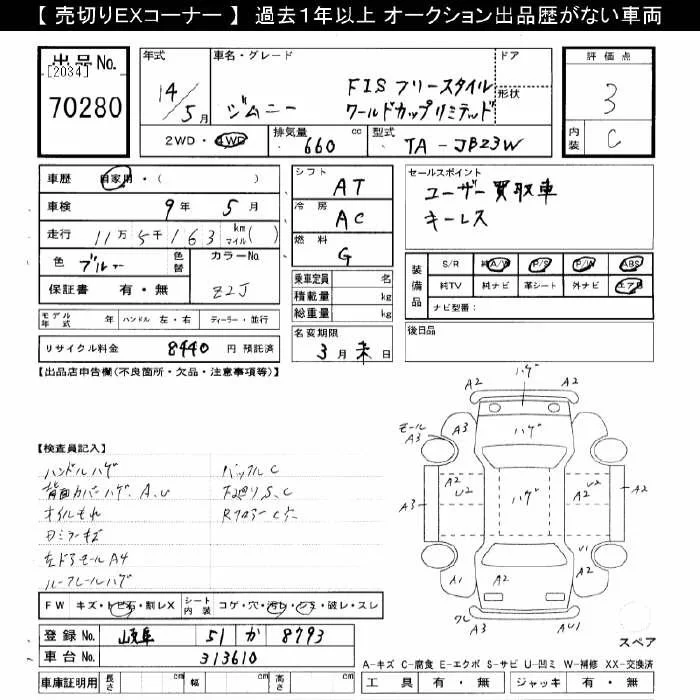 【 売切りEXコーナー 】 過去1年以上 オークション出品歴がない車両
出品No. [2034] 70280
年式 14/5月
車名・グレード ジムニー FISフリースタイル ワールドカップリミテッド
ドア 形状
評価点 3
内装 C
2WD・4WD 排気量 660 cc 型式 TA-JB23W
車歴 自家用・( )
車検 9年 5月
走行 11万5千163 km マイル( )
色 ブルー 色替 カラーNo. Z2J
保証書 有・無
シフト AT
冷房 AC
燃料 G
乗車定員 名
積載量 kg
総重量 kg
名変期限 3月末日
セールスポイント
ユーザー買取車
キーレス
装備品 S/R 純A/W P/S P/W ABS
純TV 純ナビ 革シート 外ナビ エアB
ナビ型番:
後日品
モデル年式 年 ハンドル 左・右 ディーラー・並行
リサイクル料金 8440 円 預託済
【出品店申告欄(不良箇所・欠品・注意事項等)】
【検査員記入】
ハンドルハゲ バックルC
背面カバーハゲ、A、U 下廻りS、C
オイルもれ
ミラーキズ
左ドアモールA4
ルーフレールハゲ
FW キズ・トビ石・割レX シート内装 コゲ・穴・汚レ・シミ・破レ・スレ
登録No. 岐阜 51 か 8793
車台No. 313610
車庫証明用 長さ cm 幅 cm 高さ cm
A2 ハゲ A2
モール A3 A3 ハゲ A3
A3 A2 U2 ハゲ A2 U2 A2
A1 A2 U1 A2
ワレ A3 AU1
スペア
A-キズ C-腐食 E-エクボ S-サビ U-凹ミ W-補修 XX-交換済
工具 有・無 ジャッキ 有・無